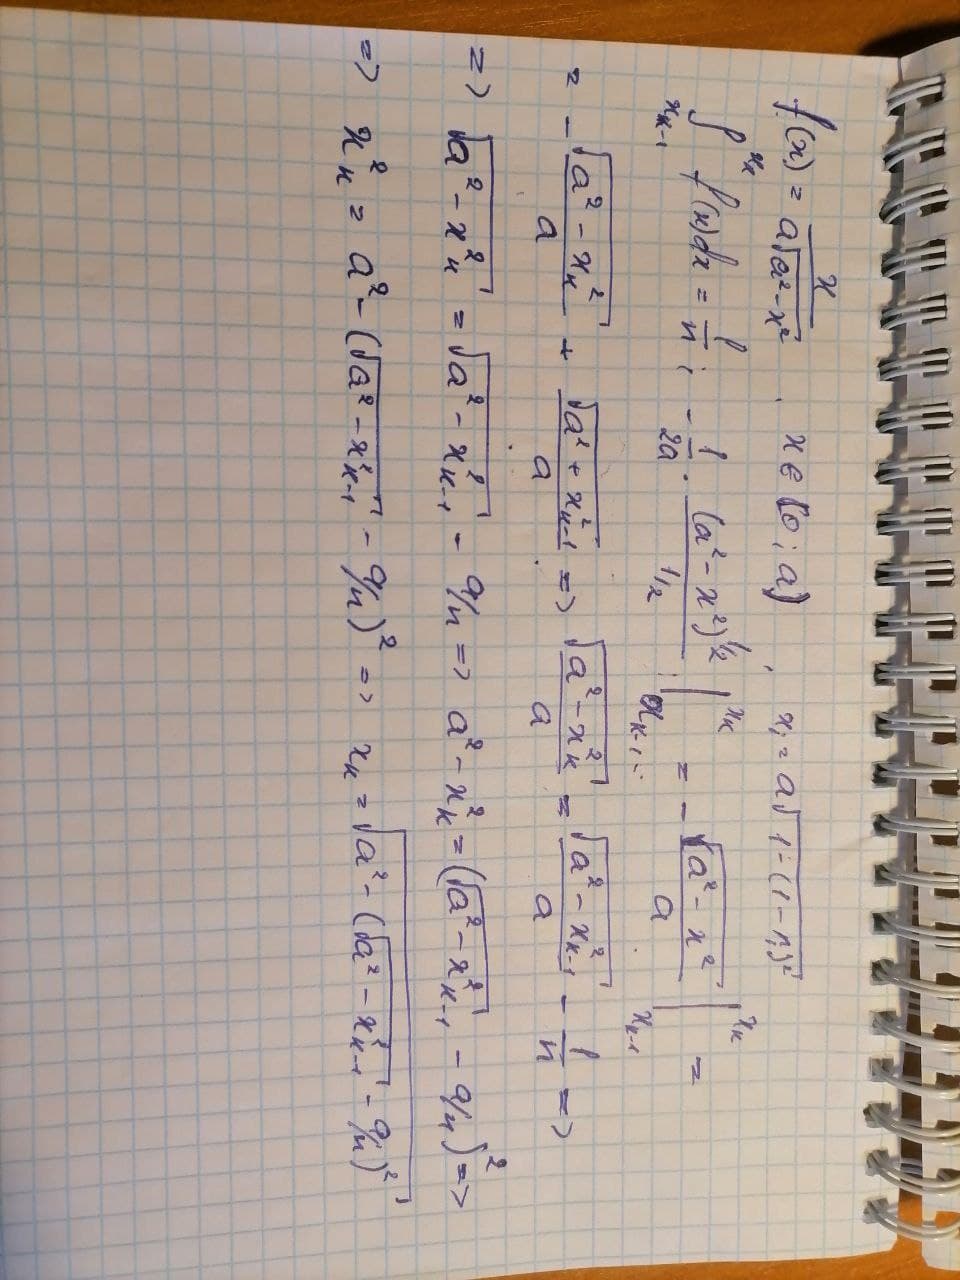 f(x) = x / (a√(a² - x²)), x ∈ [0; a), xᵢ = a√(1 - (1 - rᵢ)²)
∫_{xₖ₋₁}^{xₖ} f(x)dx = 1/n; - 1/2a · (a² - x²)^{1/2} / 1/2 |_{xₖ₋₁}^{xₖ} = - √(a² - x²) / a |_{xₖ₋₁}^{xₖ} =
= - √(a² - xₖ²) / a + √(a² + xₖ₋₁²) / a => √(a² - xₖ²) / a = √(a² - xₖ₋₁²) / a - 1/n =>
=> √(a² - xₖ²) = √(a² - xₖ₋₁²) - a/n => a² - xₖ² = (√(a² - xₖ₋₁²) - a/n)² =>
=> xₖ² = a² - (√(a² - xₖ₋₁²) - a/n)² => xₖ = √(a² - (√(a² - xₖ₋₁²) - a/n)²)